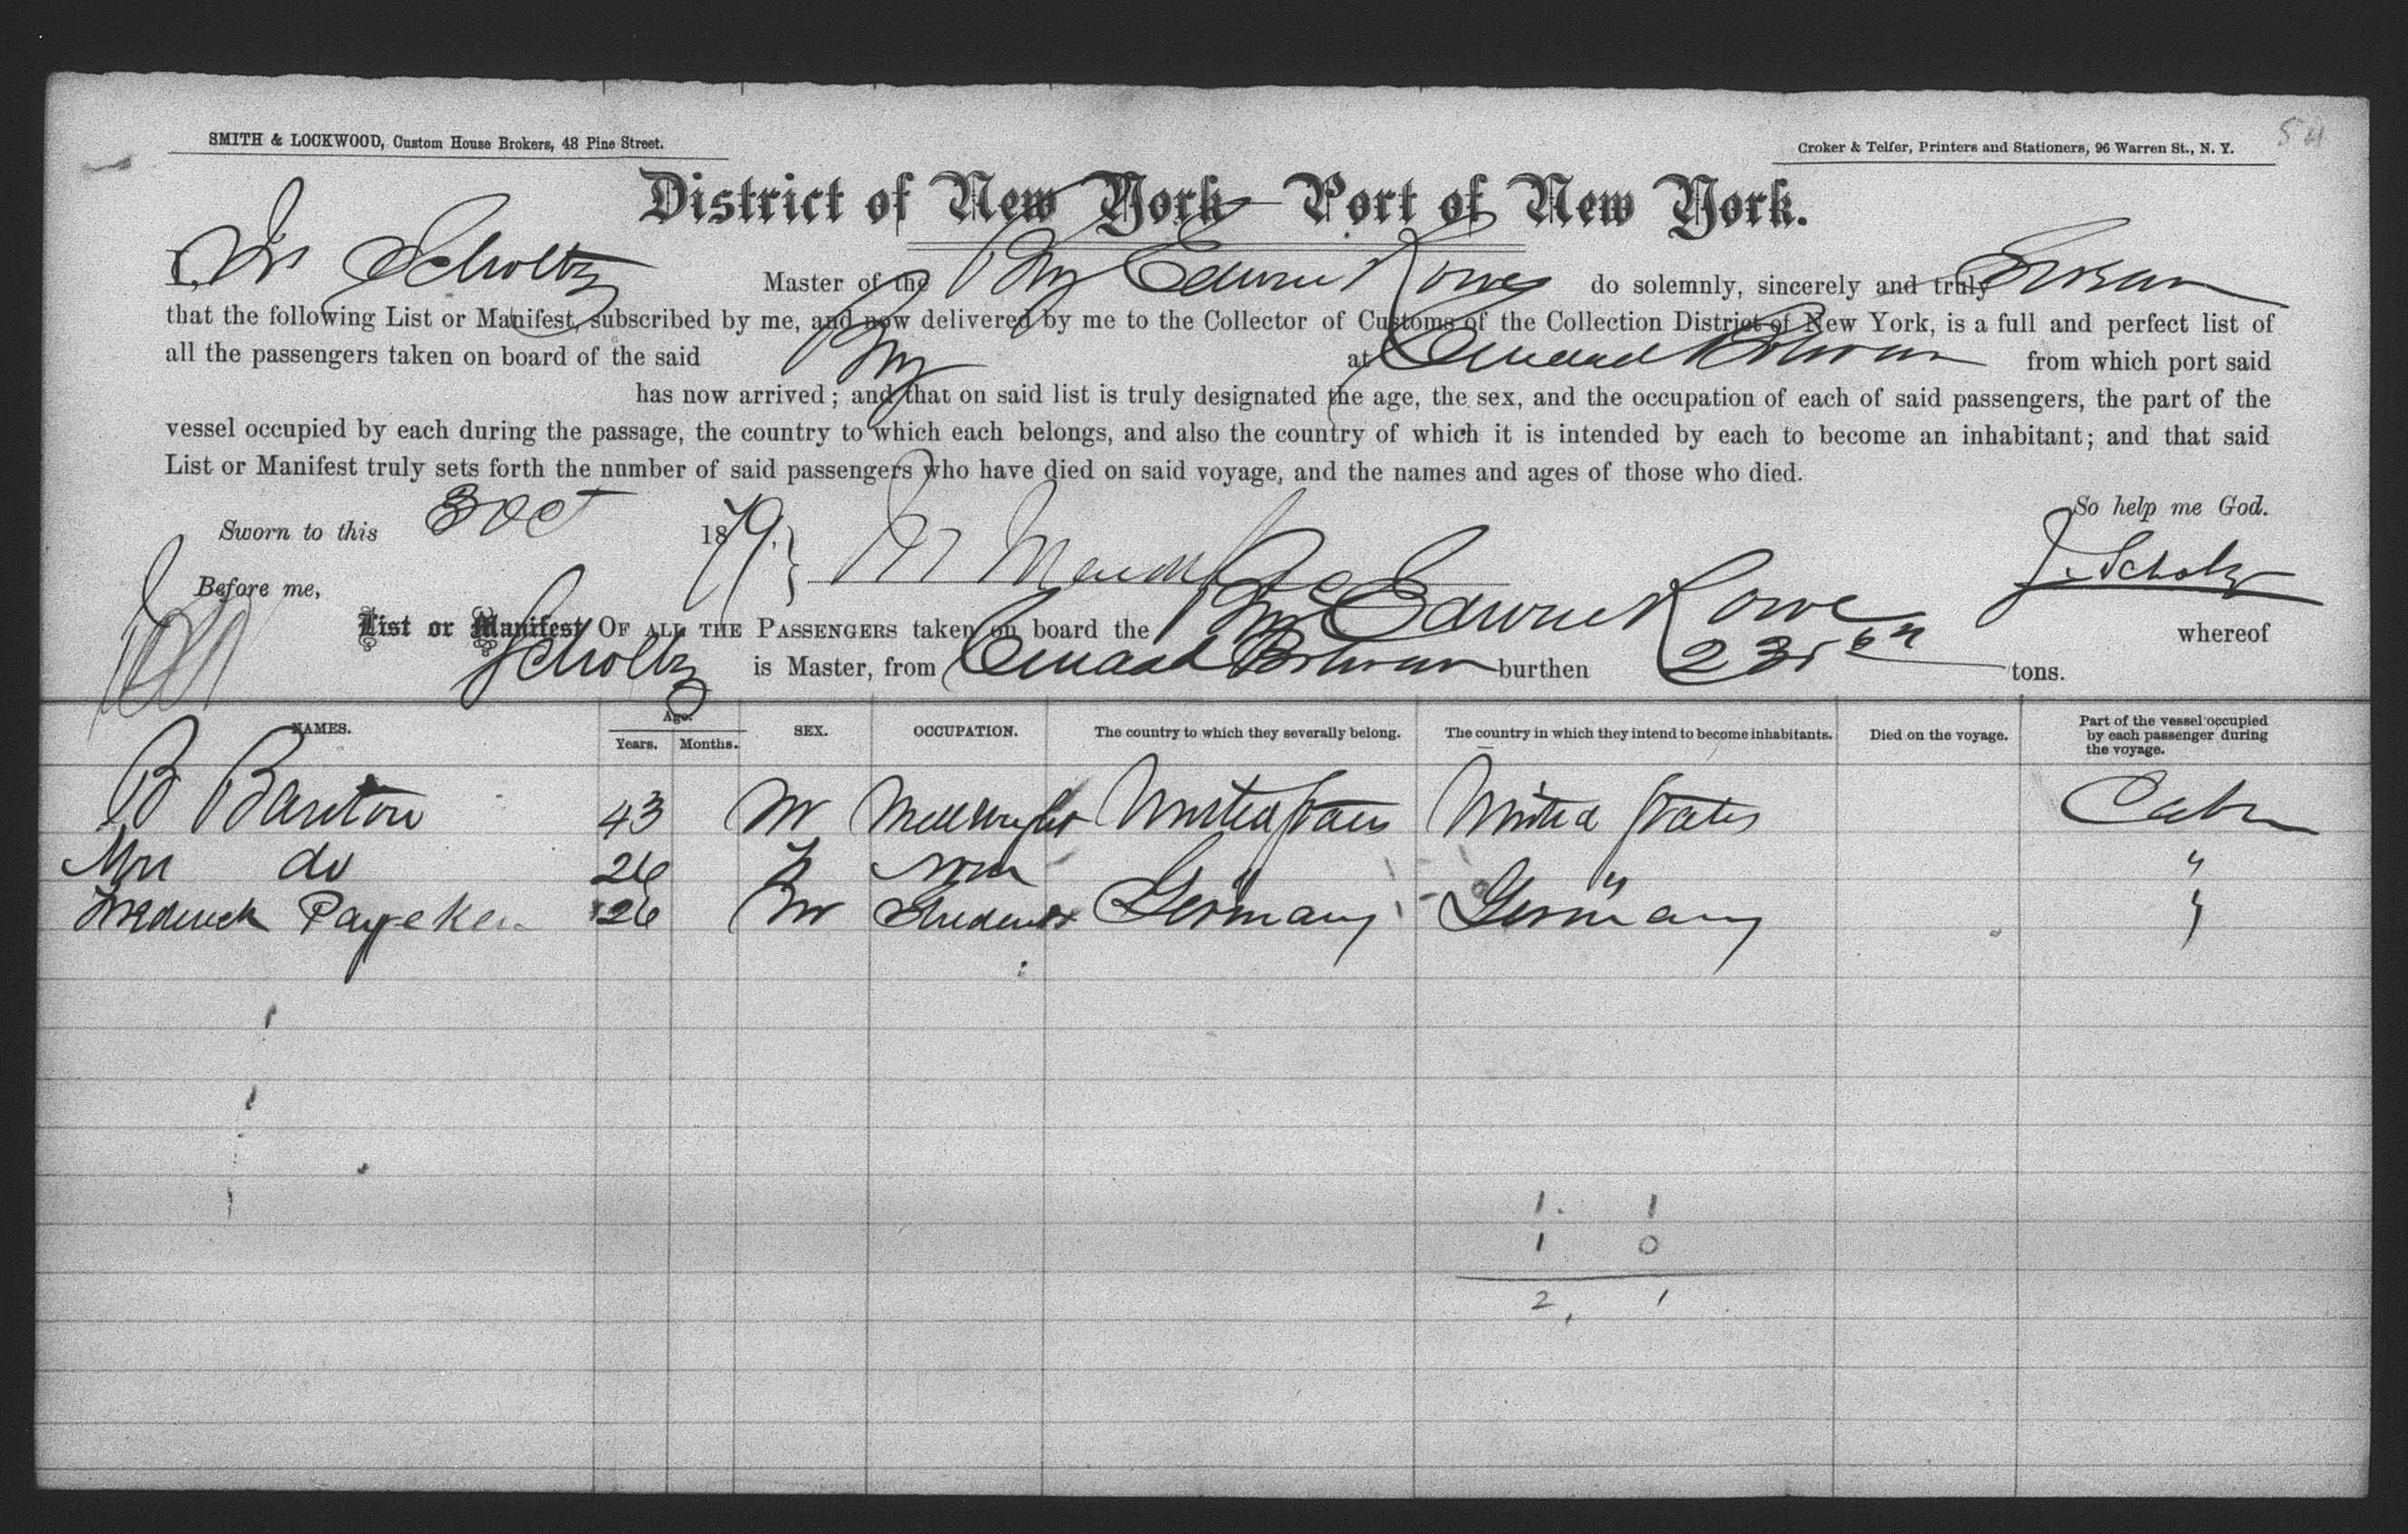 54
SMITH & LOCKWOOD, Custom House Brokers, 48 Pine Street.
Croker & Telfer, Printers and Stationers, 96 Warren St., N. Y.
District of New York—Port of New York.
I, Scholtz Master of the Brg Edwin Rowe do solemnly, sincerely and truly Swear
that the following List or Manifest, subscribed by me, and now delivered by me to the Collector of Customs of the Collection District of New York, is a full and perfect list of
all the passengers taken on board of the said Brg at Ciudad Bolivar from which port said
has now arrived; and that on said list is truly designated the age, the sex, and the occupation of each of said passengers, the part of the
vessel occupied by each during the passage, the country to which each belongs, and also the country of which it is intended by each to become an inhabitant; and that said
List or Manifest truly sets forth the number of said passengers who have died on said voyage, and the names and ages of those who died.
So help me God.
Sworn to this 3 Oct 1879,
J. Scholtz
Before me,
List or Manifest OF ALL THE PASSENGERS taken on board the Brg Edwin Rowe whereof
Scholtz is Master, from Ciudad Bolivar burthen 235 tons.
NAMES. Age. Years. Months. SEX. OCCUPATION. The country to which they severally belong. The country in which they intend to become inhabitants. Died on the voyage. Part of the vessel occupied by each passenger during the voyage.
B Barton 43 M Millwright United States United States Cabin
Mrs do 26 F None " " "
Frederick Payeken 26 M Student Germany Germany "
1. 1
1 0
2, 1